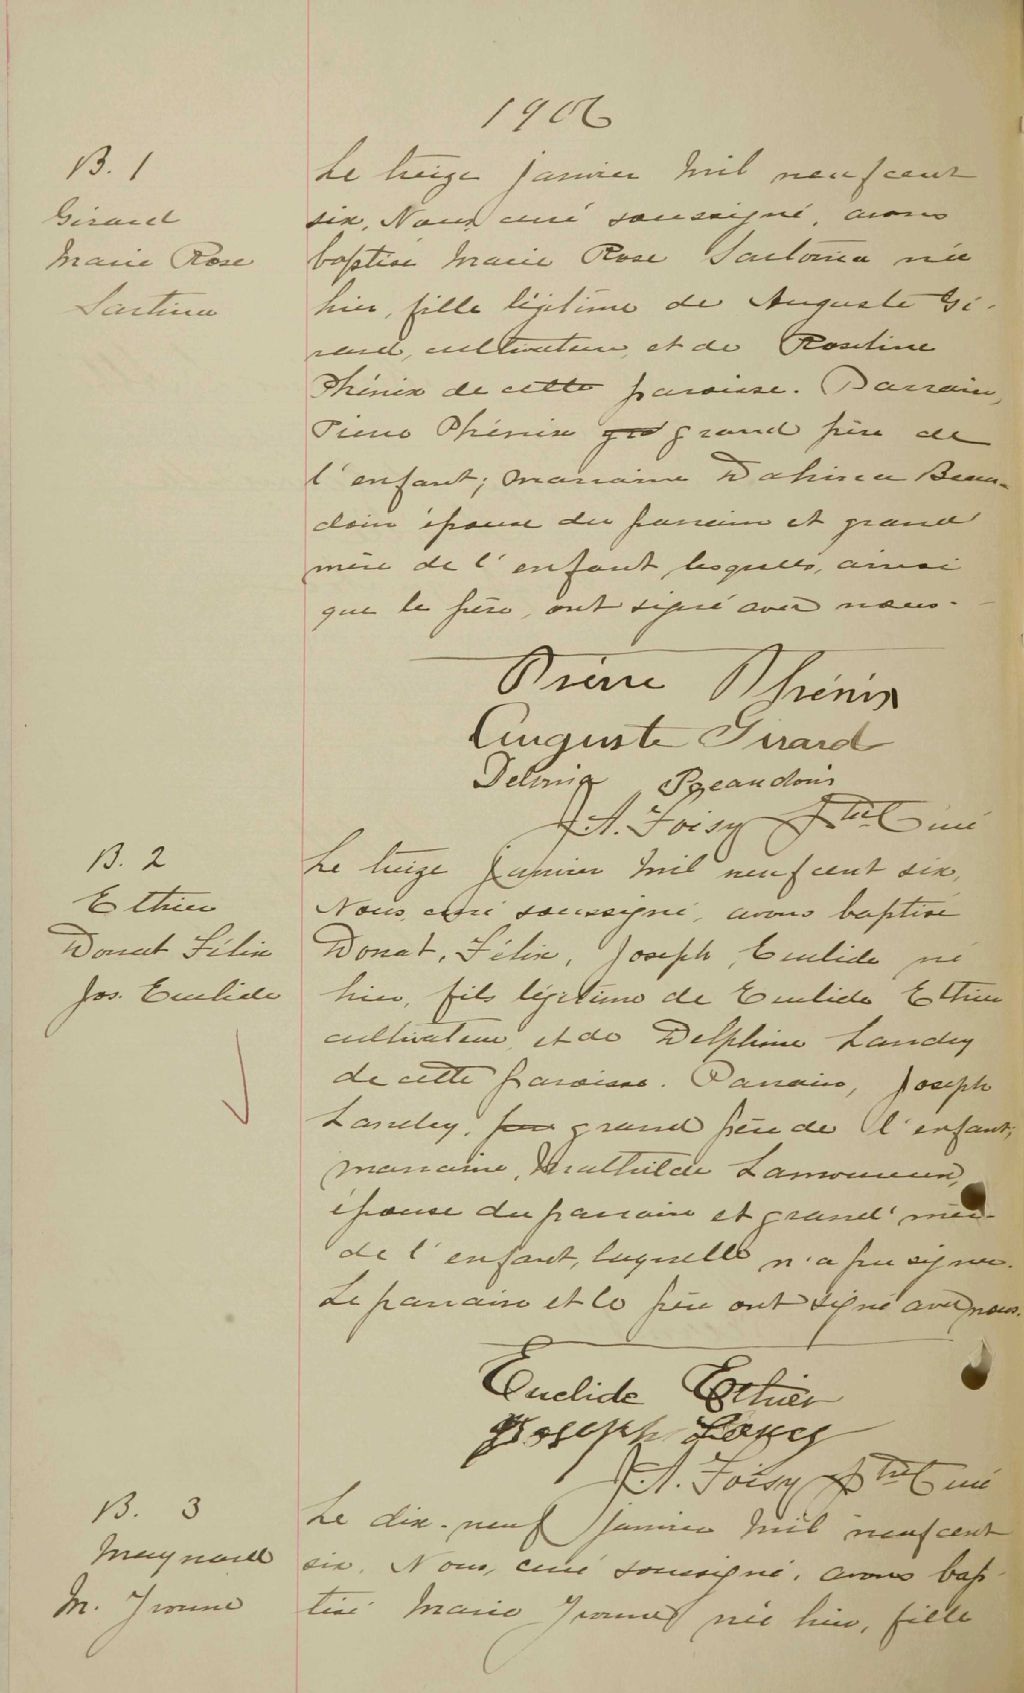 1906
B. 1
Girard
Marie Rose
Le treize janvier mil neuf cent
six, Nous curé soussigné, avons
baptisé Marie Rose née
hier, fille légitime de Auguste Gi-
rard, cultivateur, et de Roseline
Phénix de cette paroisse. Parrain,
Pierre Phénix grand père de
l'enfant; marraine Beau-
doin épouse du parrain et grand'
mère de l'enfant, lesquels, ainsi
que le père, ont signé avec nous.
Pierre Phénix
Auguste Girard
Beaudoin
J.A. Foisy Ptre Curé
B. 2
Ethier
Donat Félix
Jos. Euclide
Le treize janvier mil neuf cent six,
Nous, curé soussigné, avons baptisé
Donat, Félix, Joseph, Euclide né
hier, fils légitime de Euclide Ethier
cultivateur, et de Delphine Landry
de cette paroisse. Parrain, Joseph
Landry, grand père de l'enfant;
marraine, Mathilde Lamoureux,
épouse du parrain et grand'mère
de l'enfant, laquelle n'a pu signer.
Le parrain et le père ont signé avec nous.
Euclide Ethier
Joseph
J.A. Foisy Ptre Curé
B. 3
Maynard
M. Yvonne
Le dix-neuf janvier mil neuf cent
six, Nous, curé soussigné, avons bap-
tisé Marie Yvonne née hier, fille